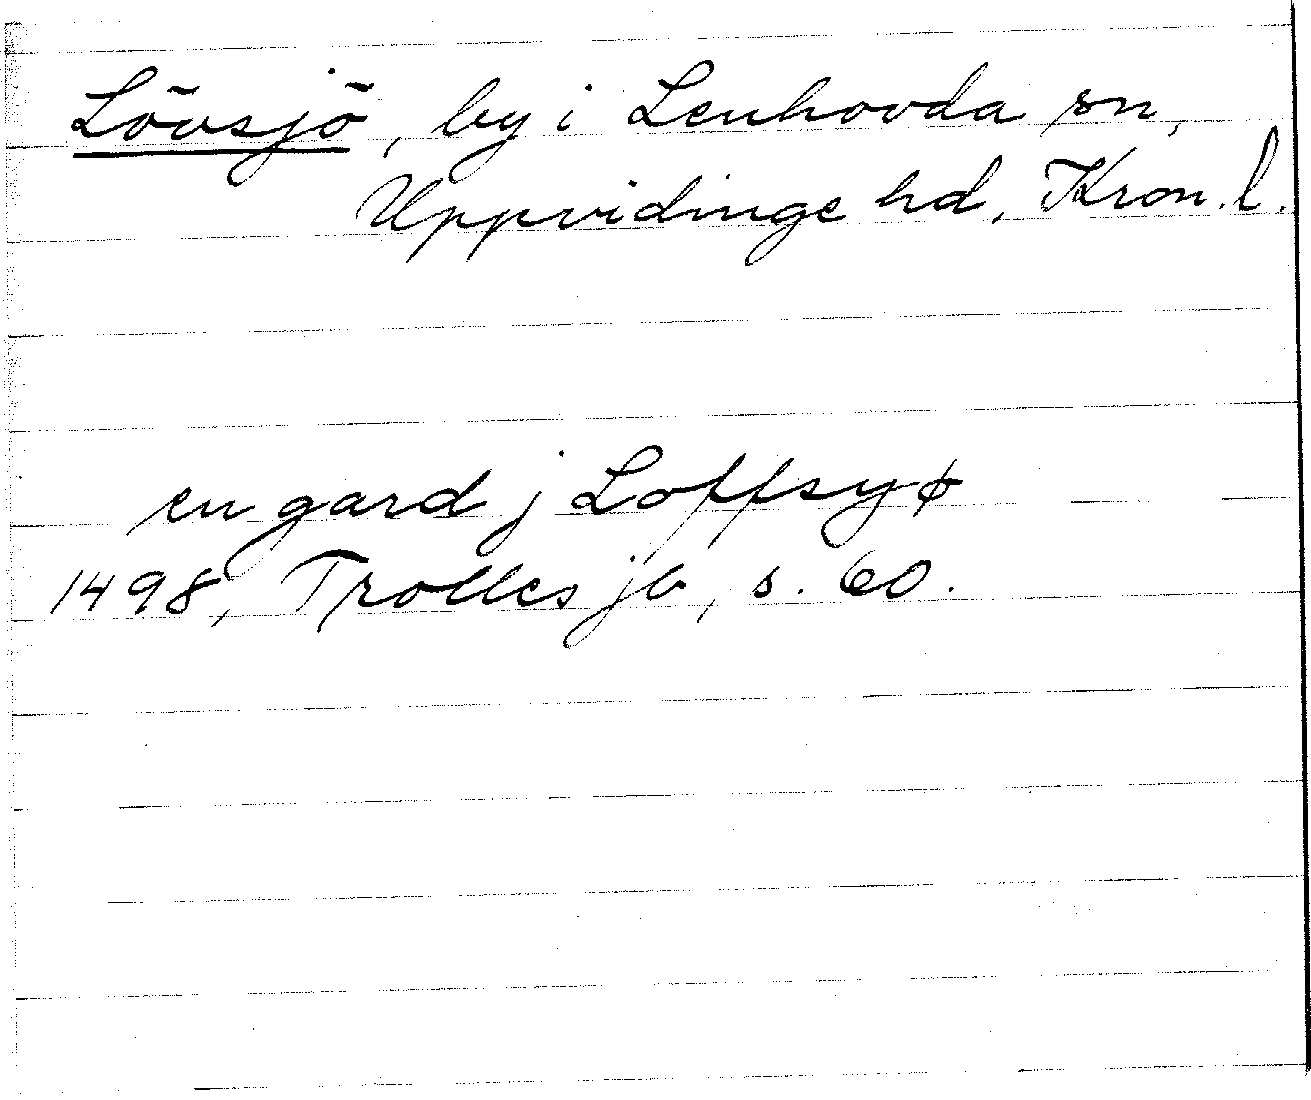 Lövsjö, by i Lenhovda sn,
Uppvidinge hd, Kron. l.
en gard j Loffsyø
1498, Trolles jb, s. 60.